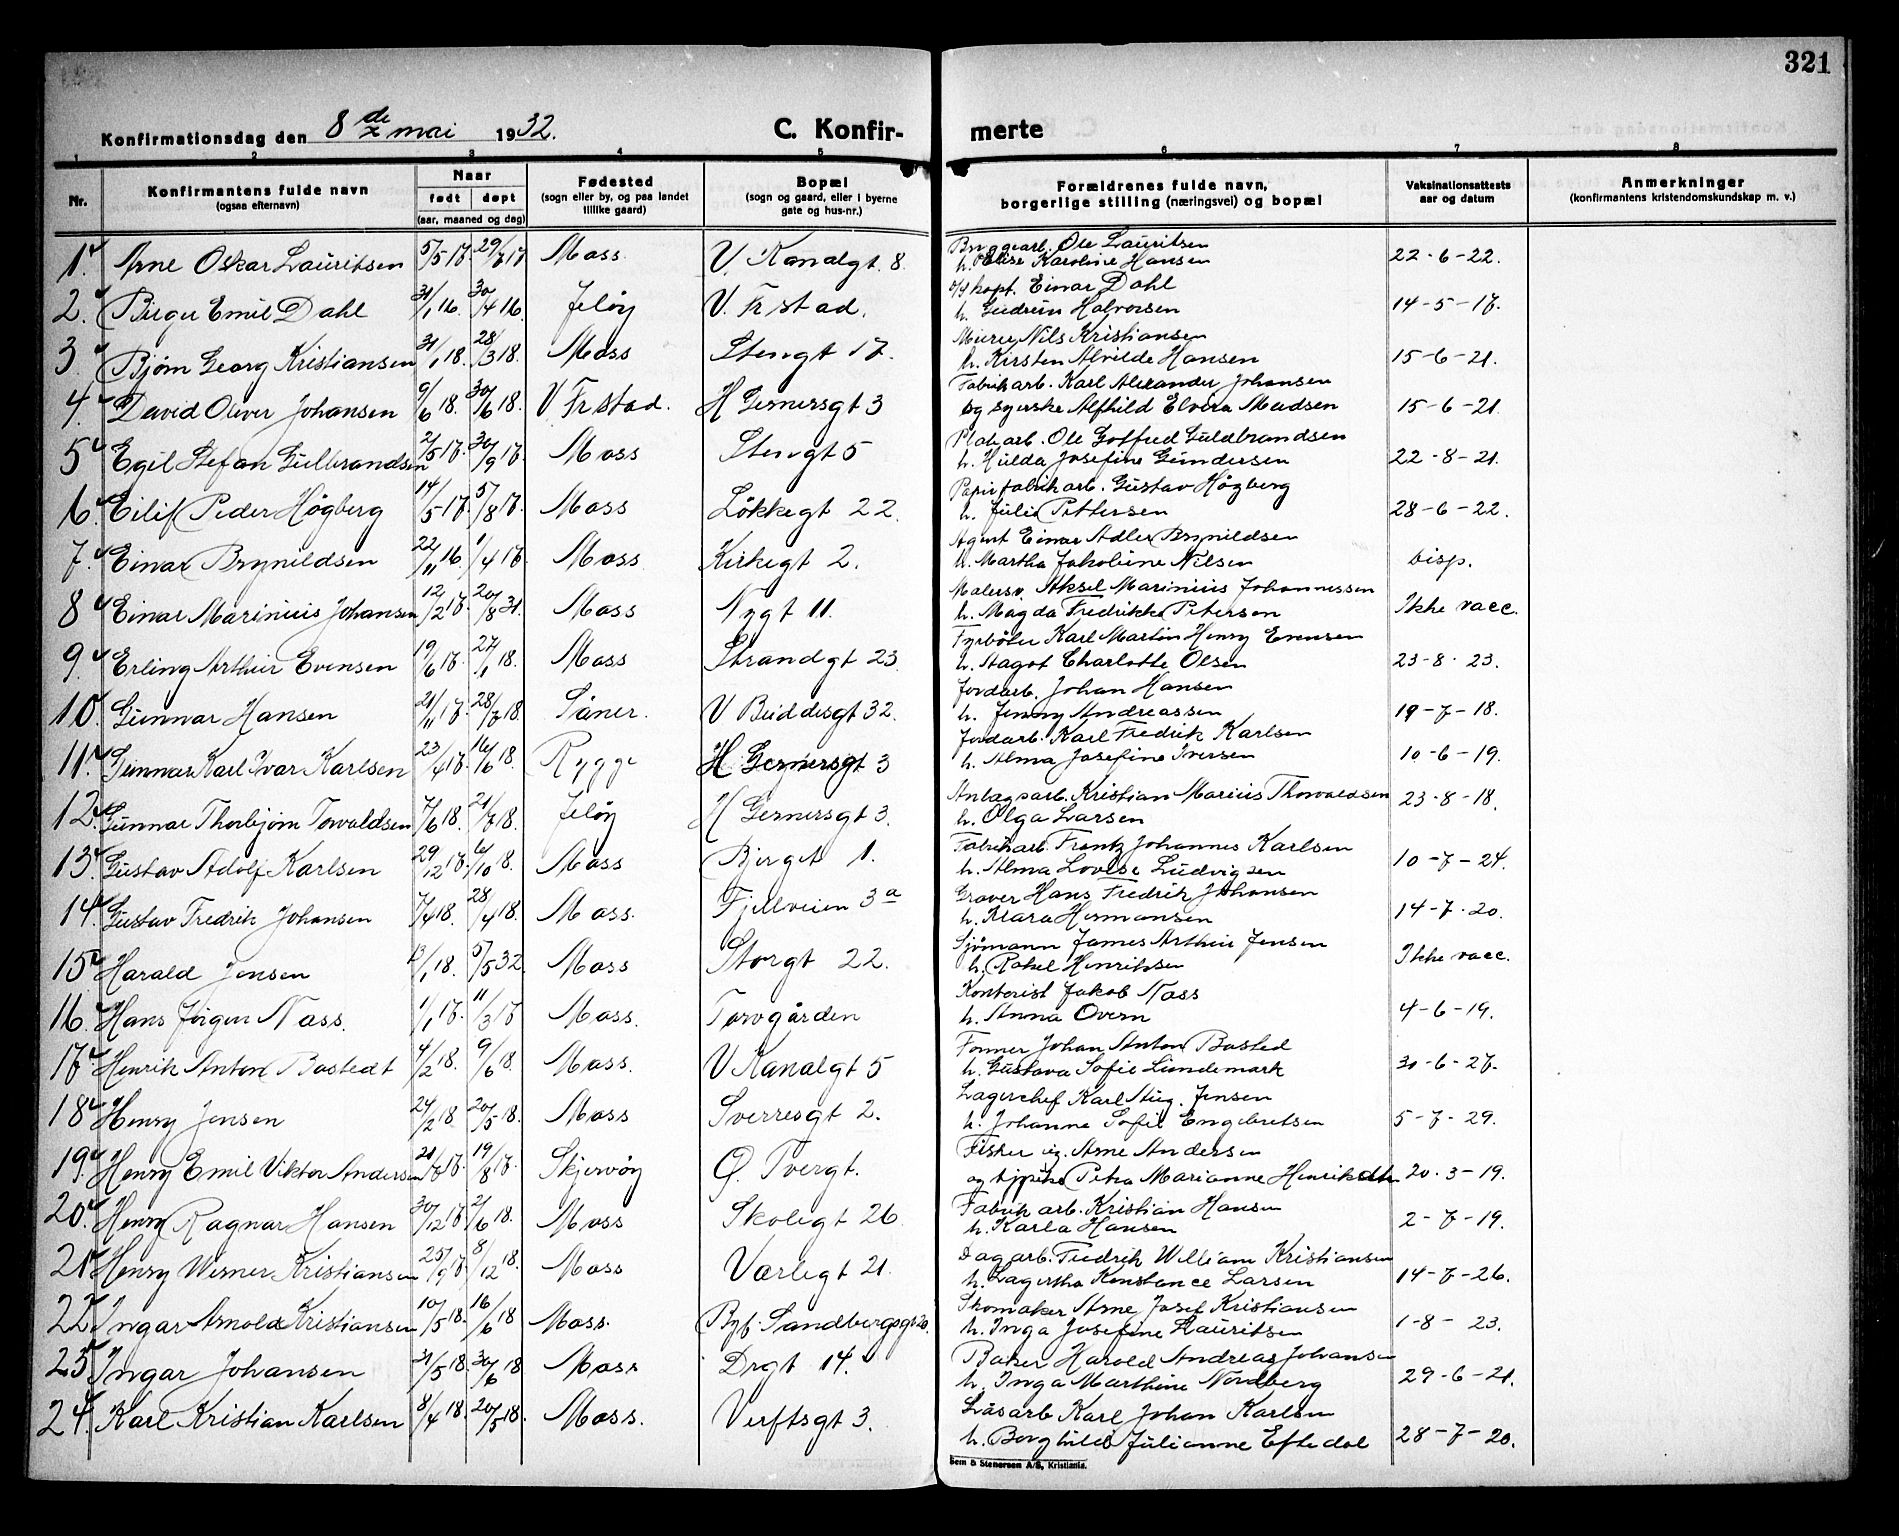 321
Konfirmationsdag den 8de mai 1932.
C. Konfir-
merte
1 2 3 4 5 6 7 8
Nr.
Konfirmantens fulde navn
(ogsaa efternavn)
Naar
født døpt
(aar, maaned og dag)
Fødested
(sogn eller by, og paa landet
tillike gaard)
Bopæl
(sogn og gaard, eller i byerne
gate og hus-nr.)
Forældrenes fulde navn,
borgerlige stilling (næringsvei) og bopæl
Vaksinationsattests
aar og datum
Anmerkninger
(konfirmantens kristendomskundskap m. v.)
1. Arne Oskar Lauritsen 5/5 17. 29/7 17 Moss V. Kanalgt. 8. Bryggearb. Ole Lauritsen
h. Elise Karoline Hansen 22-6-22.
2. Birger Emil Dahl 31/1 16. 30/4 16. Jeløy V. Frstad. Kapt. Einar Dahl
h. Gudrun Halvorsen 14-5-17.
3. Bjørn Georg Kristiansen 31/1 18. 28/3 18. Moss Stengt 17. Murer Nils Kristiansen
h. Kirsten Alvilde Hansen 15-6-21.
4. David Oliver Johansen 9/6 18. 30/6 18. V Frstad. H Gernersgt 3 Fabrikarb. Karl Alexander Johansen
og syerske Alfhild Elvira Madsen 15-6-21.
5. Egil Stefan Gulbrandsen 2/5 17. 30/9 17. Moss Stengt 5 Platearb. Ole Gotfred Guldbrandsen
h. Hulda Josefine Gundersen 22-8-21.
6. Eilif Peder Högberg 14/5 17. 5/8 17. Moss Løkkegt 22. Papirfabrikarb. Gustav Högberg
h. Julie Pettersen 28-6-22.
7. Einar Brynildsen 22/11 16 1/4 17 Moss Kirkegt 2. Agent Einar Adler Brynildsen
h. Martha Jakobine Nilsen bisp.
8. Einar Marinius Johansen 12/2 17. 20/8 31. Moss Nygt 11. Malersv. Aksel Marinius Johannessen
h. Magda Fredrikke Petersen Ikke vacc.
9. Erling Arthur Evensen 19/6 17. 27/1 18. Moss Strandgt 23. Fyrbøter Karl Martin Henry Evensen
h. Aagot Charlotte Olsen 23-8-23.
10. Gunnar Hansen 21/11 17. 28/7 18. Såner. V Buddesgt 32. Jordarb. Johan Hansen
h. Jenny Andreassen 19-7-18.
11. Gunnar Karl Ivar Karlsen 23/4 17. 16/6 18. Rygge H Gernersgt 3 Jordarb. Karl Fredrik Karlsen
h. Alma Josefine Iversen 10-6-19.
12. Gunnar Thorbjørn Torvaldsen 7/6 18. 21/7 18. Jeløy H Gernersgt 3. Anlægsarb. Kristian Marius Thorvaldsen
h. Olga Larsen 23-8-18.
13. Gustav Adolf Karlsen 29/12 17. 6/10 18. Moss Bjerget 1. Fabrikarb. Frantz Johannes Karlsen
h. Alma Lovise Ludvigsen 10-7-24.
14. Gustav Fredrik Johansen 7/4 18. 28/4 18. Moss. Fjellveien 3a Graver Hans Fredrik Johansen
h. Klara Hermansen 14-7-20.
15. Harald Jensen 12/1 18. 5/5 32. Moss Storgt 22. Sjømann James Arthur Jensen
h. Rakel Henriksen Ikke vacc.
16. Hans Jörgen Nass. 1/1 17. 11/3 17 Moss. Torvgården Kontorist Jakob Nass
h. Anna Overn 4-6-19.
17. Henrik Anton Bastedt 4/2 18. 9/6 18. Moss. V Kanalgt 5 Former Johan Anton Basted
h. Gustava Sofie Lundemark 30-6-27.
18. Henry Jensen 24/2 18 20/5 18. Moss Sverresgt 2. Lagerchef Karl Stig. Jensen
h. Johanne Sofie Engebretsen 5-7-29.
19. Henry Emil Viktor Andersen 21/7 17. 19/8 17. Skjervöy Ø. Tvergt. Fisker ug. Arne Andersen
og tjpike Petra Marianne Henriksen 20.3-19.
20. Henry Ragnar Hansen 30/12 17. 2/6 18. Moss Skolegt 26 Fabrikarb. Kristian Hansen
h. Karla Hansen 2-7-19.
21. Henry Werner Kristiansen 25/9 17. 8/12 18. Moss Varlegt 21. Dagarb. Fredrik William Kristiansen
h. Lagertha Konstance Larsen 14-7-26.
22. Ingar Arnold Kristiansen 10/5 18. 16/6 18 Moss. Bgf. Sandbergsgt 20. Skomaker Arne Josef Kristiansen
h. Inga Josefine Lauritsen 1-8-23.
23. Ingar Johansen 31/5 18. 30/6 18 Moss Drgt 14. Baker Harald Andreas Johansen
h. Inga Marthine Nordberg 29-6-21.
24. Karl Kristian Karlsen 8/4 18. 20/5 18. Moss. Verftsgt 3. Låsarb Karl Johan Karlsen
h. Borghild Julianne Eftedal 28-7-20.
Sem & Stenersen A/S, Kristiania.